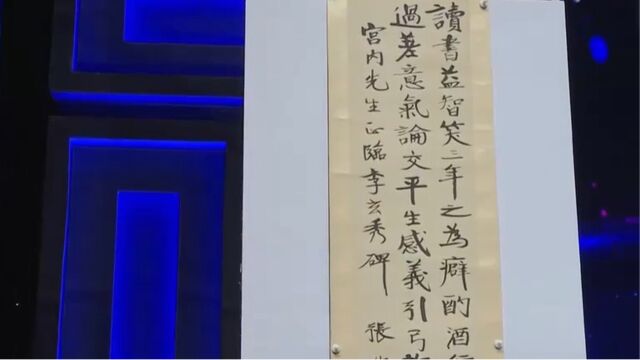 讀書益智笑三年之為癖酌酒
過差意氣論文平生感義引弓
宫内先生正臨李玄秀碑 張